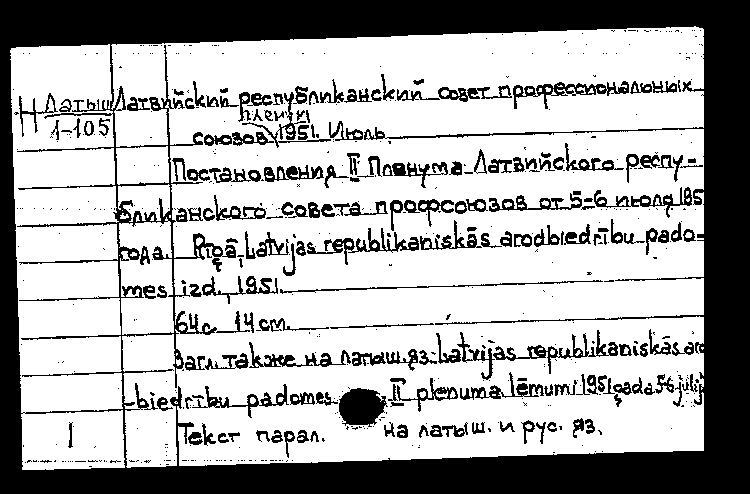 Н Латыш Латвийский республиканский совет профессиональных
1-105
пленум
союзов 1951. Июль.
Постановления II Пленума Латвийского респу-
бликанского совета профсоюзов от 5-6 июля 195
года. Rīgā, Latvijas republikaniskās arodbiedrību pado-
mes izd., 1951.
64 с. 14 см.
Загл. также на латыш. яз.: Latvijas republikaniskās aro
-biedrību padomes II plenuma lēmumi 1951 gada 5-6 jūlij
1 Текст парал. на латыш. и рус. яз.